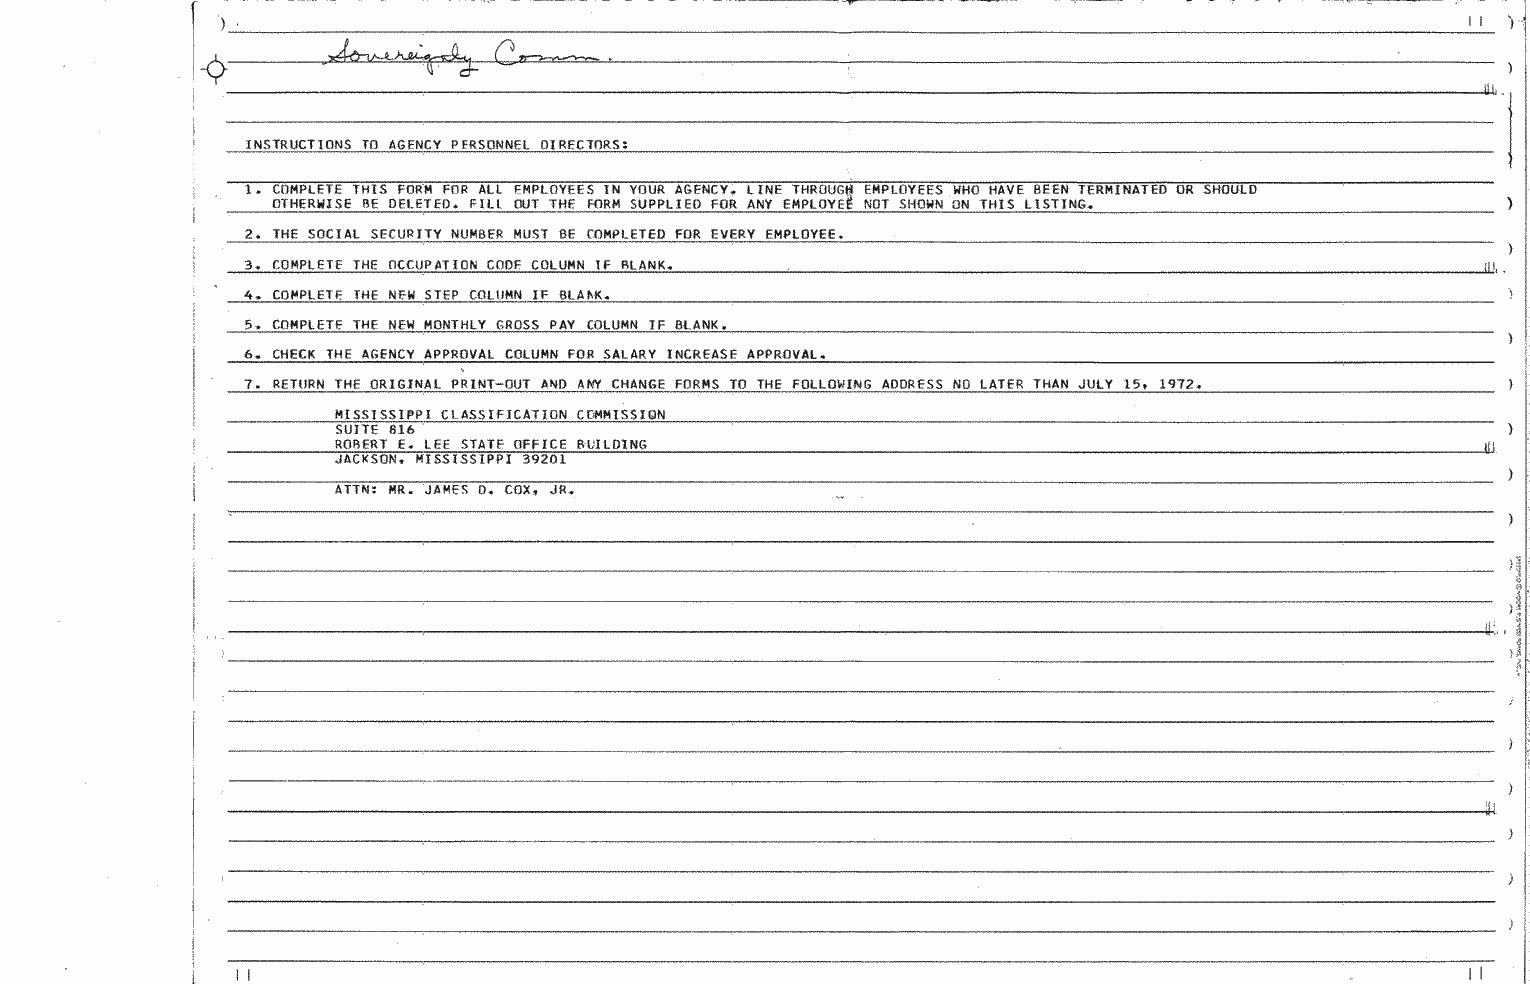 Sovereignty Comm.
INSTRUCTIONS TO AGENCY PERSONNEL DIRECTORS:
1. COMPLETE THIS FORM FOR ALL EMPLOYEES IN YOUR AGENCY. LINE THROUGH EMPLOYEES WHO HAVE BEEN TERMINATED OR SHOULD
OTHERWISE BE DELETED. FILL OUT THE FORM SUPPLIED FOR ANY EMPLOYEE NOT SHOWN ON THIS LISTING.
2. THE SOCIAL SECURITY NUMBER MUST BE COMPLETED FOR EVERY EMPLOYEE.
3. COMPLETE THE OCCUPATION CODE COLUMN IF BLANK.
4. COMPLETE THE NEW STEP COLUMN IF BLANK.
5. COMPLETE THE NEW MONTHLY GROSS PAY COLUMN IF BLANK.
6. CHECK THE AGENCY APPROVAL COLUMN FOR SALARY INCREASE APPROVAL.
7. RETURN THE ORIGINAL PRINT-OUT AND ANY CHANGE FORMS TO THE FOLLOWING ADDRESS NO LATER THAN JULY 15, 1972.
MISSISSIPPI CLASSIFICATION COMMISSION
SUITE 816
ROBERT E. LEE STATE OFFICE BUILDING
JACKSON, MISSISSIPPI 39201
ATTN: MR. JAMES D. COX, JR.